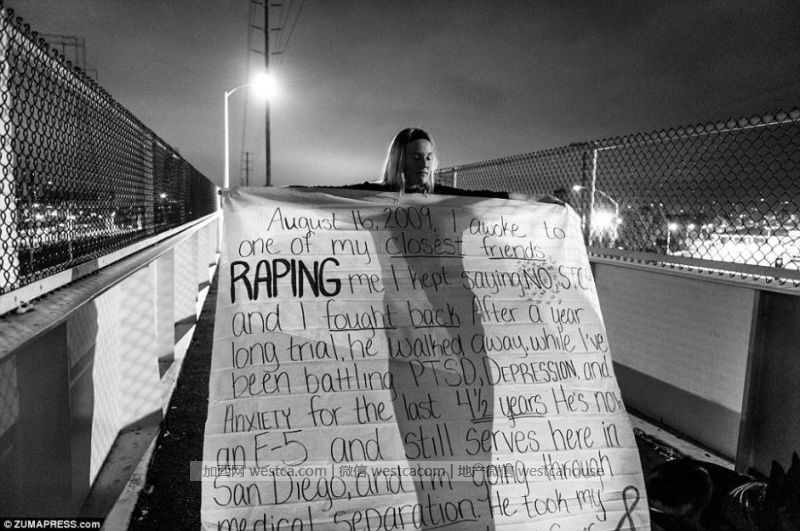 August 16, 2009, I awoke to
one of my closest friends
RAPING me I kept saying NO, STO
and I fought back After a year
long trial, he walked away, while I've
been battling PTSD, DEPRESSION, and
ANXIETY for the last 4½ years He's now
an F-5 and still serves here in
San Diego, and I'm going though
medical separation. He took my
加西网 westca.com | 微信 westcacom | 地产微信 westcahouse
© ZUMAPRESS.com